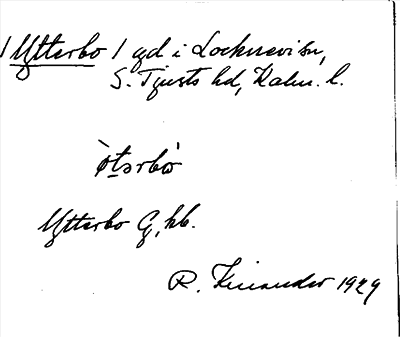 / Ytterbo / gd i Locknevi sn,
S. Tjusts hd, Kalm. l.
òtərbò
Ytterbo G, kb.
R. Kinander 1929